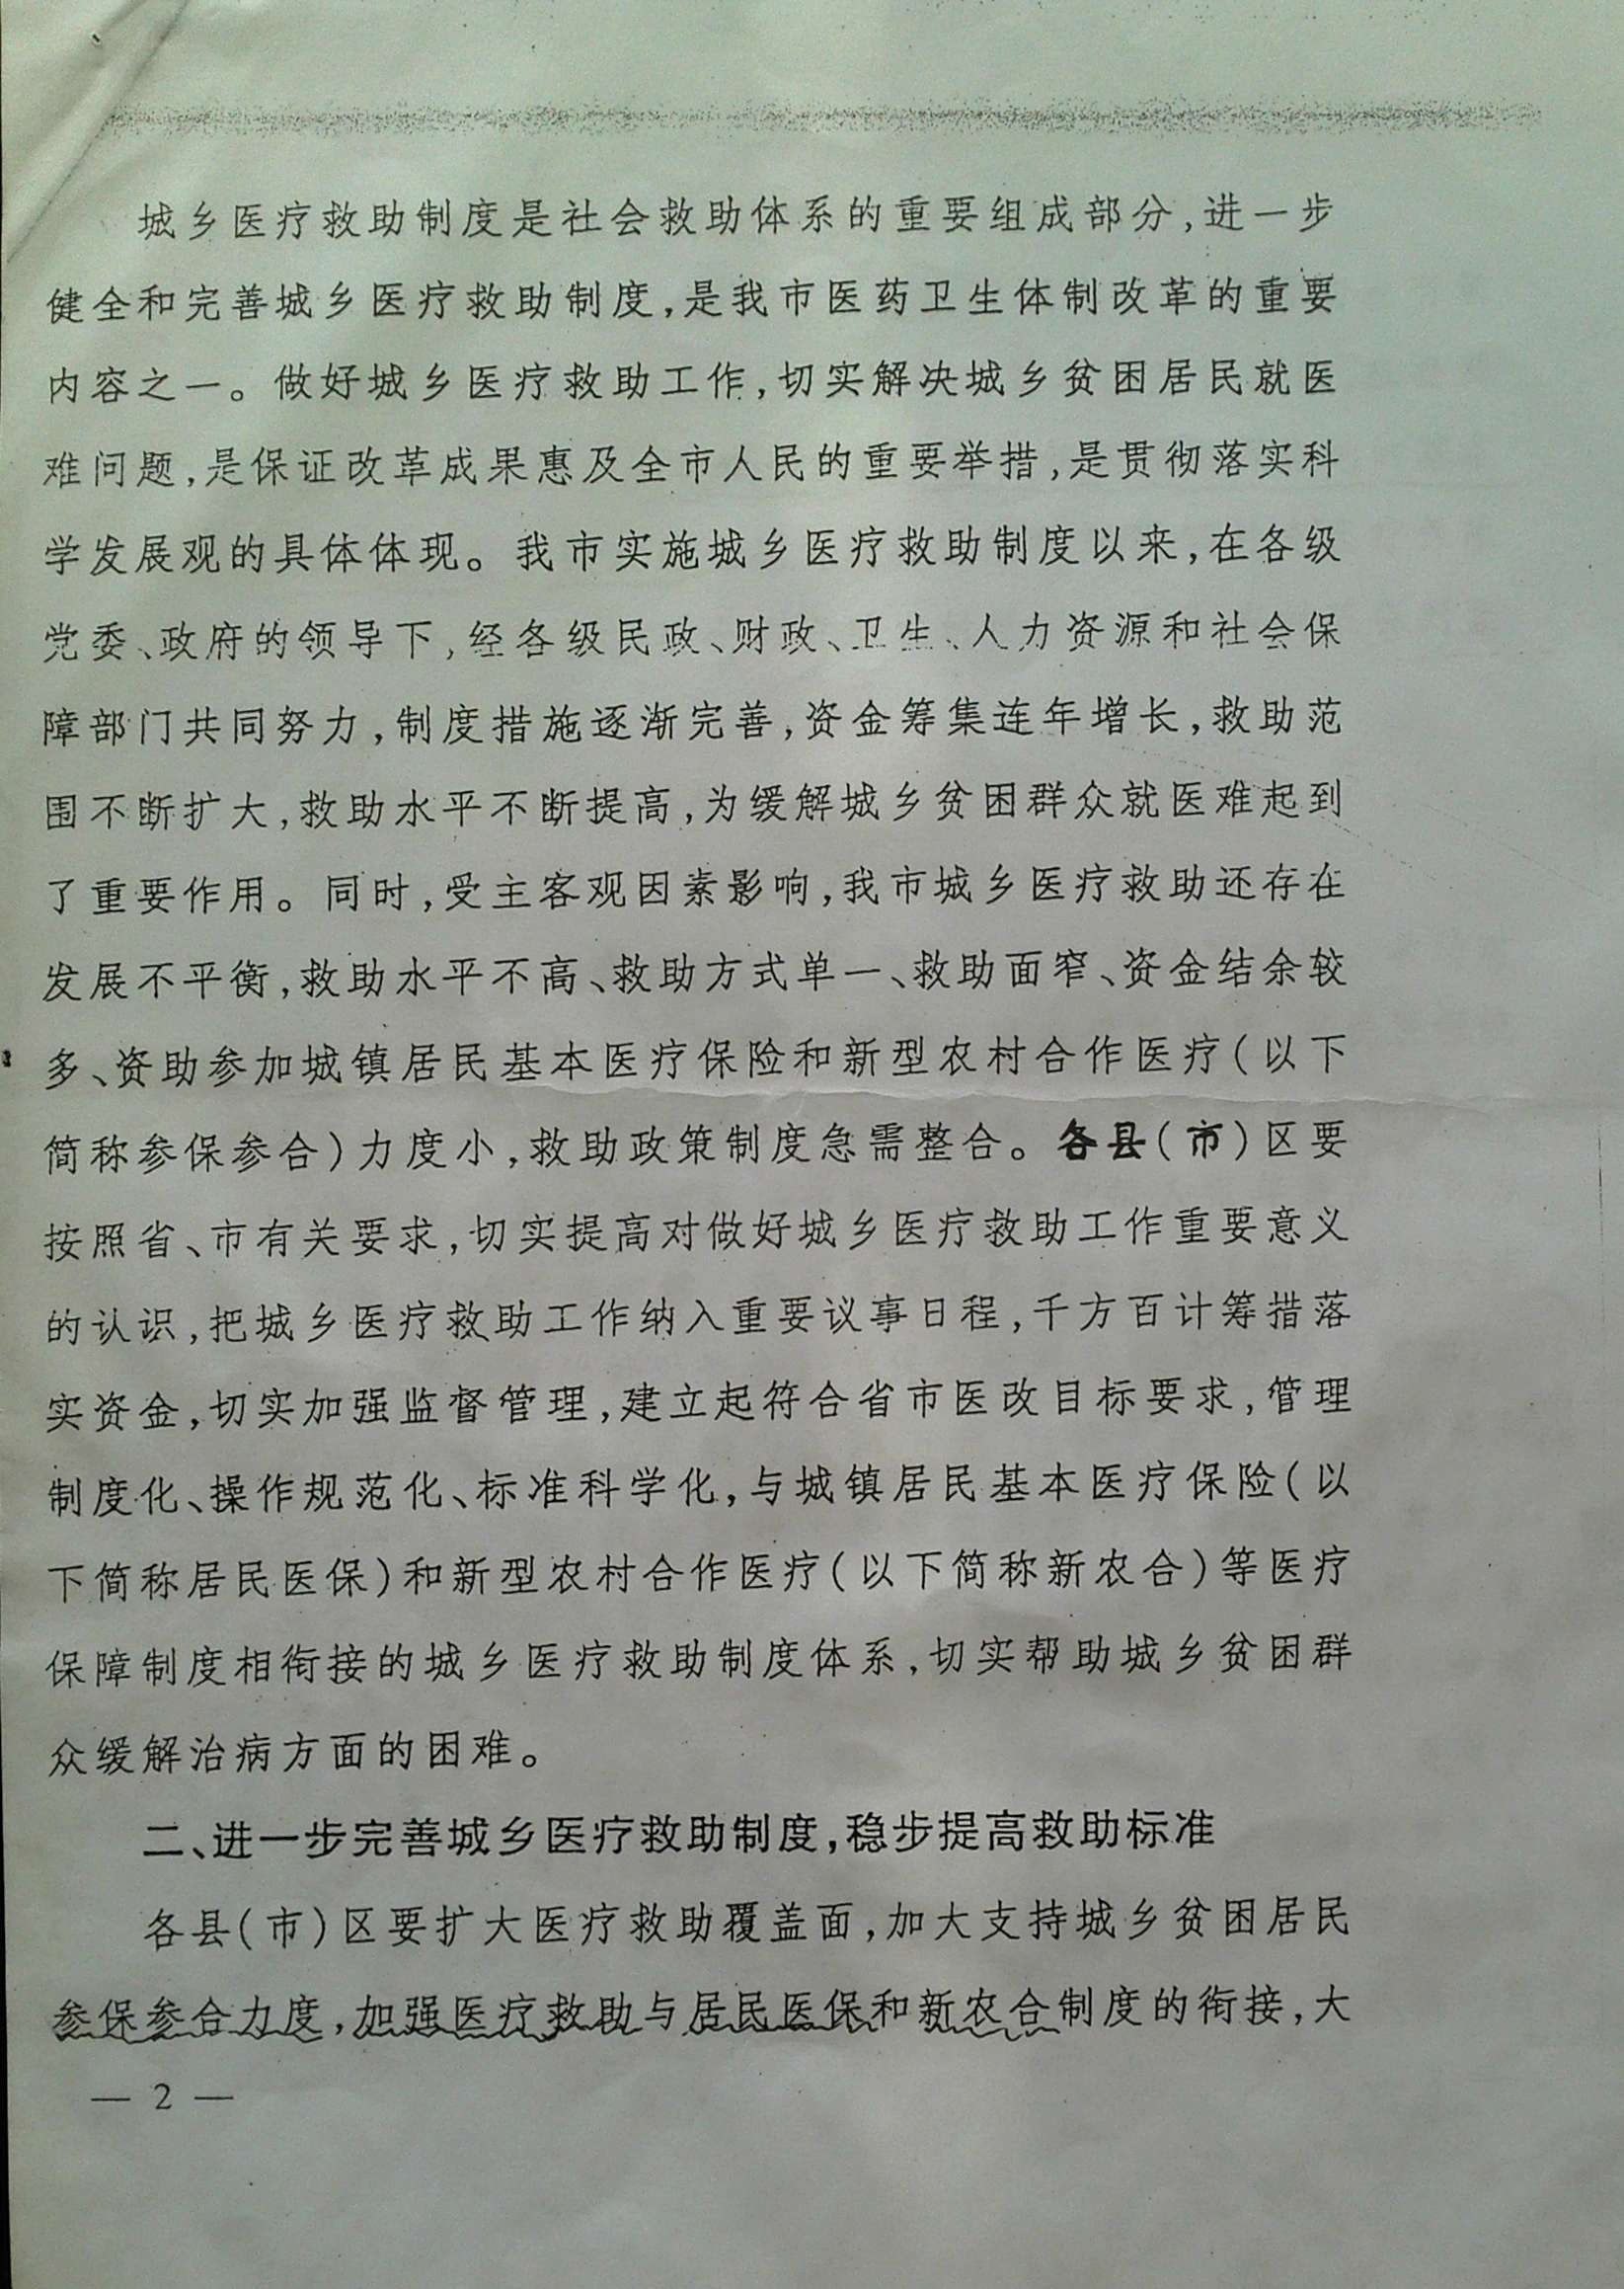 城乡医疗救助制度是社会救助体系的重要组成部分,进一步
健全和完善城乡医疗救助制度,是我市医药卫生体制改革的重要
内容之一。做好城乡医疗救助工作,切实解决城乡贫困居民就医
难问题,是保证改革成果惠及全市人民的重要举措,是贯彻落实科
学发展观的具体体现。我市实施城乡医疗救助制度以来,在各级
党委、政府的领导下,经各级民政、财政、卫生、人力资源和社会保
障部门共同努力,制度措施逐渐完善,资金筹集连年增长,救助范
围不断扩大,救助水平不断提高,为缓解城乡贫困群众就医难起到
了重要作用。同时,受主客观因素影响,我市城乡医疗救助还存在
发展不平衡,救助水平不高、救助方式单一、救助面窄、资金结余较
多、资助参加城镇居民基本医疗保险和新型农村合作医疗(以下
简称参保参合)力度小,救助政策制度急需整合。各县(市)区要
按照省、市有关要求,切实提高对做好城乡医疗救助工作重要意义
的认识,把城乡医疗救助工作纳入重要议事日程,千方百计筹措落
实资金,切实加强监督管理,建立起符合省市医改目标要求,管理
制度化、操作规范化、标准科学化,与城镇居民基本医疗保险(以
下简称居民医保)和新型农村合作医疗(以下简称新农合)等医疗
保障制度相衔接的城乡医疗救助制度体系,切实帮助城乡贫困群
众缓解治病方面的困难。
二、进一步完善城乡医疗救助制度,稳步提高救助标准
各县(市)区要扩大医疗救助覆盖面,加大支持城乡贫困居民
参保参合力度,加强医疗救助与居民医保和新农合制度的衔接,大
— 2 —